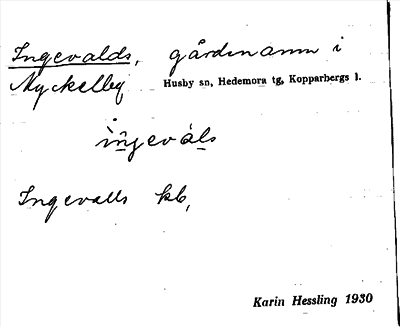 Ingevalds, gårdnamn i
Nyckelby Husby sn, Hedemora tg, Kopparbergs l.
iŋevàls
Ingevalls kb,
Karin Hessling 1930